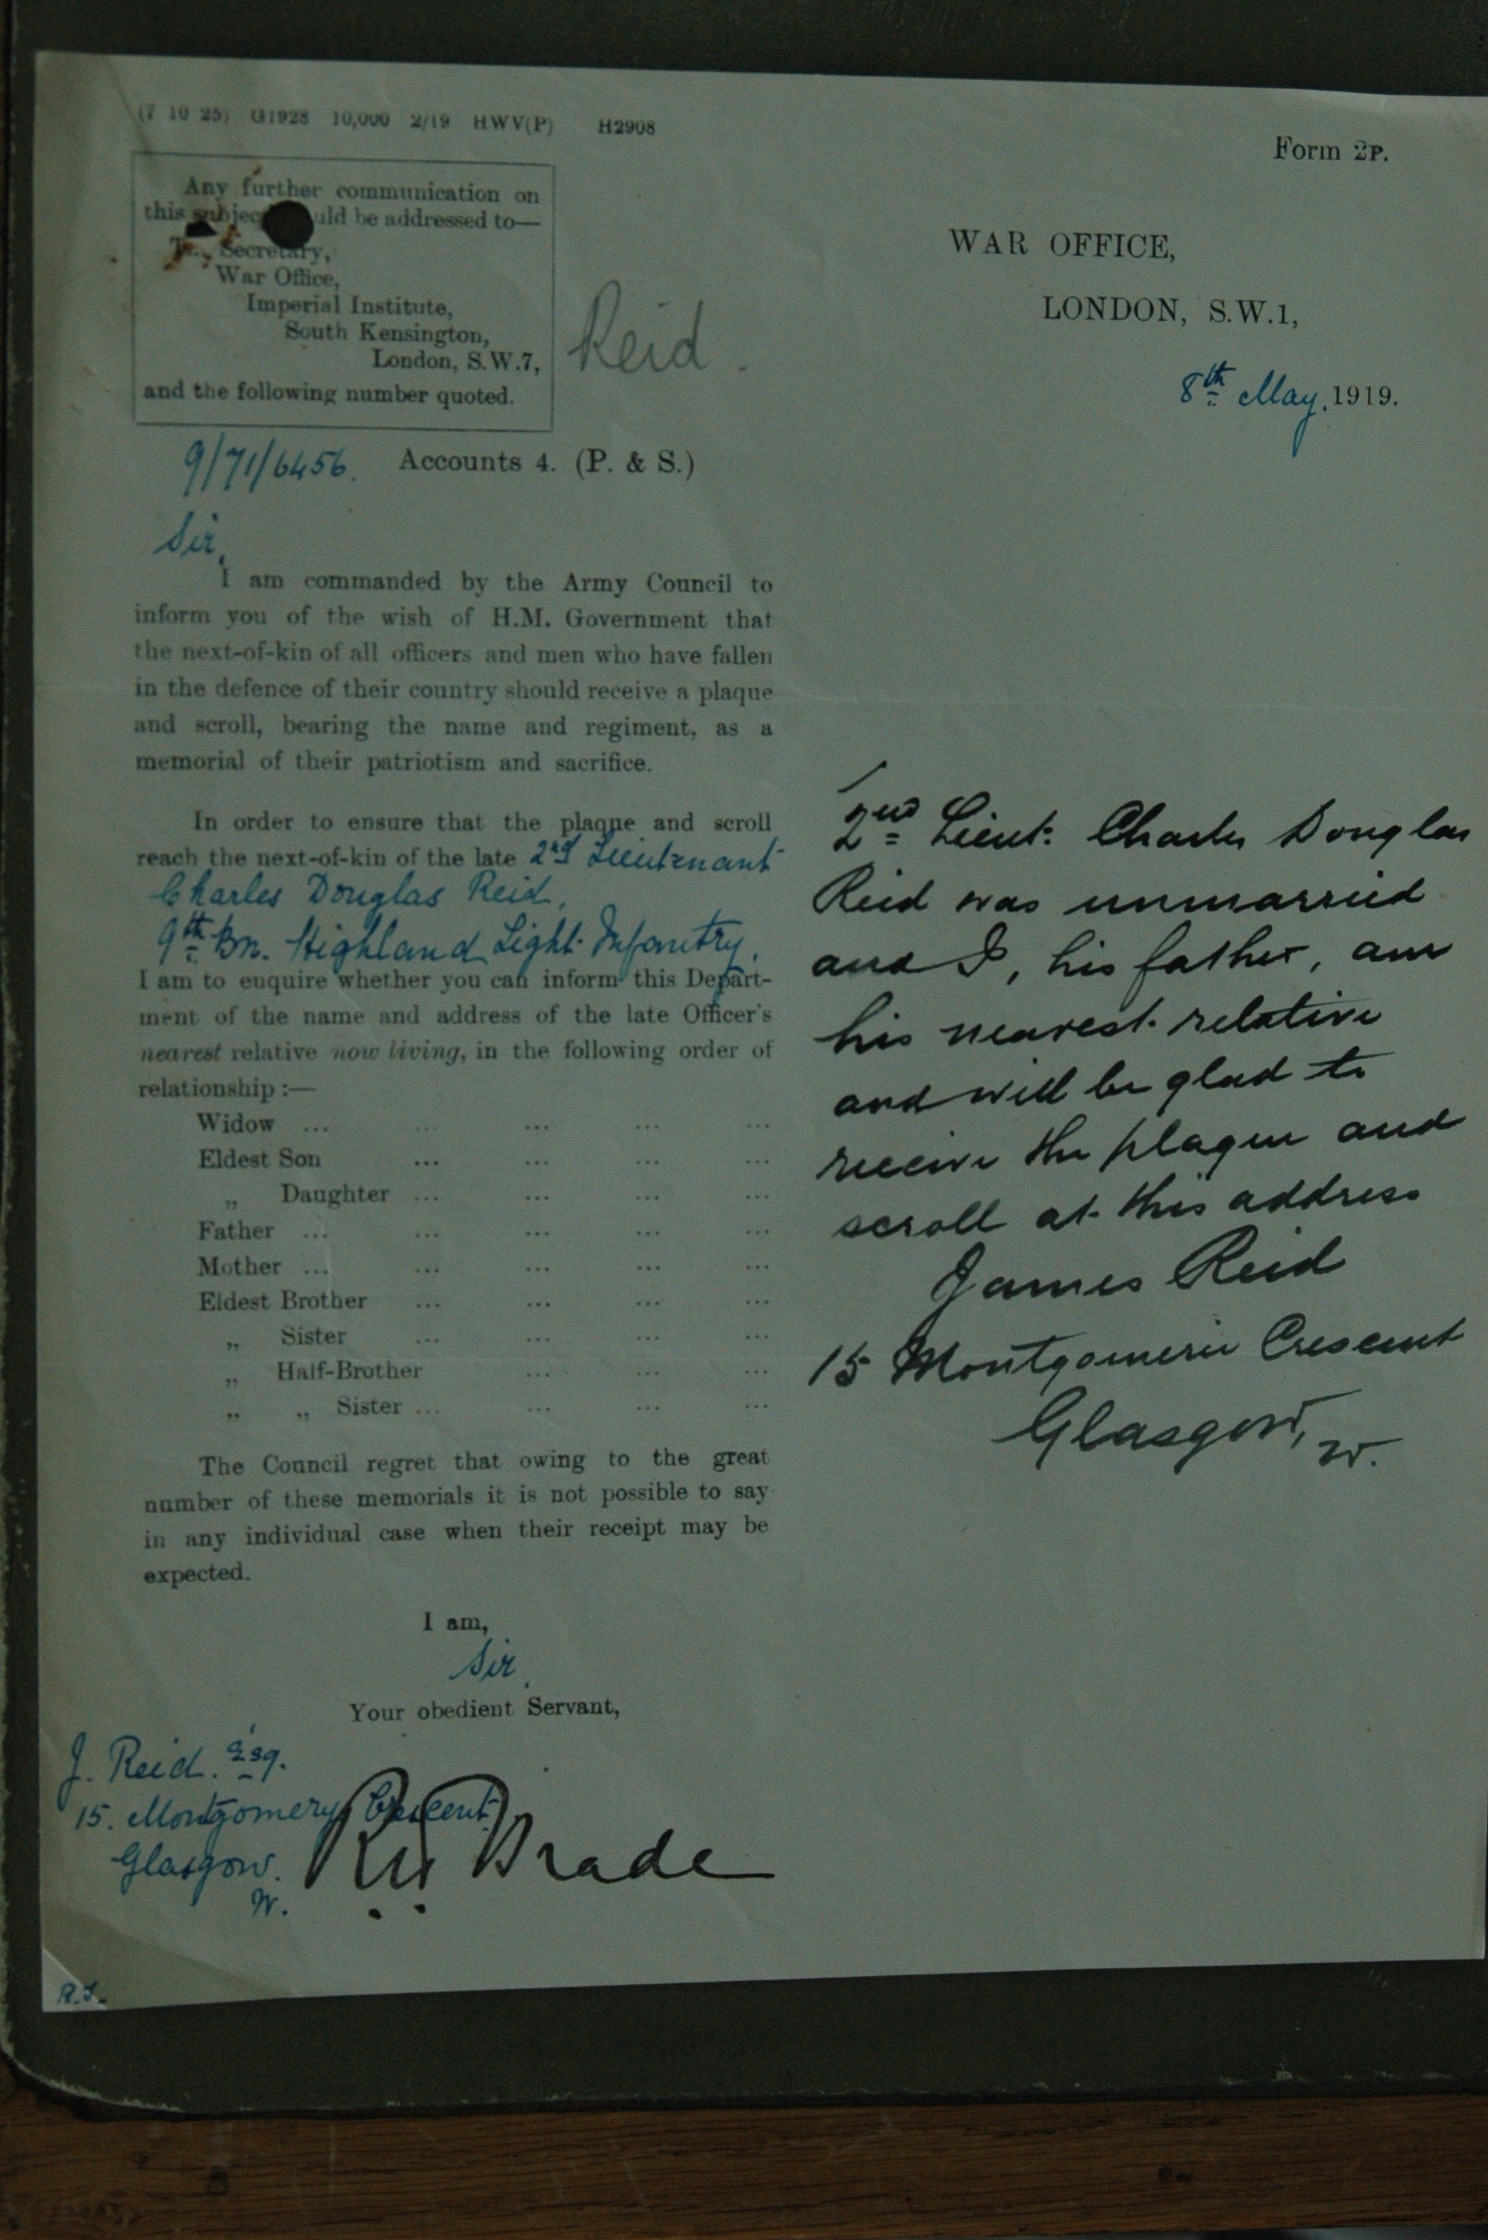 (7 10 25) G1928 10,000 2/19 HWV(P) H2908
Form 2P.
Any further communication on
this subject should be addressed to—
The Secretary,
War Office,
Imperial Institute,
South Kensington,
London, S.W.7,
and the following number quoted.
Reid.
WAR OFFICE,
LONDON, S.W.1,
8th May, 1919.
9/71/6456. Accounts 4. (P. & S.)
Sir,
I am commanded by the Army Council to
inform you of the wish of H.M. Government that
the next-of-kin of all officers and men who have fallen
in the defence of their country should receive a plaque
and scroll, bearing the name and regiment, as a
memorial of their patriotism and sacrifice.
In order to ensure that the plaque and scroll
reach the next-of-kin of the late 2nd Lieutenant
Charles Douglas Reid,
9th Bn. Highland Light Infantry.
I am to enquire whether you can inform this Depart-
ment of the name and address of the late Officer's
nearest relative now living, in the following order of
relationship :—
Widow ... ... ... ... ...
Eldest Son ... ... ... ...
„ Daughter ... ... ... ...
Father ... ... ... ... ...
Mother ... ... ... ... ...
Eldest Brother ... ... ... ...
„ Sister ... ... ... ...
„ Half-Brother ... ... ...
„ „ Sister ... ... ... ...
The Council regret that owing to the great
number of these memorials it is not possible to say
in any individual case when their receipt may be
expected.
I am,
Sir,
Your obedient Servant,
J. Reid. Esq.
15. Montgomery Crescent
Glasgow.
W.
R W Brade
R.J.
2nd Lieut: Charles Douglas
Reid was unmarried
and I, his father, am
his nearest relative
and will be glad to
receive the plaque and
scroll at this address
James Reid
15 Montgomerie Crescent
Glasgow, W.